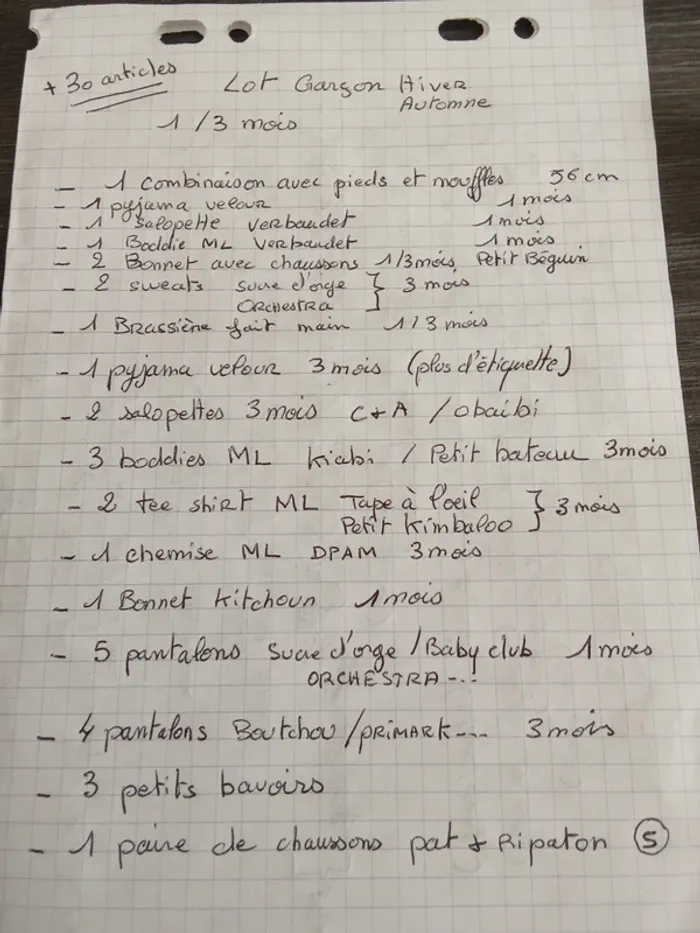 + 30 articles
Lot Garçon Hiver
Automne
1/3 mois
- 1 combinaison avec pieds et mouffles 56 cm
- 1 pyjama velour 1 mois
- 1 salopette verbaudet 1 mois
- 1 Boddie ML verbaudet 1 mois
- 2 Bonnet avec chaussons 1/3 mois, Petit Béguin
- 2 sweats sucre d'orge } 3 mois
ORCHESTRA
- 1 Brassière fait main 1/3 mois
- 1 pyjama velour 3 mois (plus d'étiquette)
- 2 salopettes 3 mois C+A / obaibi
- 3 boddies ML kiabi / Petit bateau 3 mois
- 2 tee shirt ML Tape à l'oeil } 3 mois
Petit Kimbaloo
- 1 chemise ML DPAM 3 mois
- 1 Bonnet kitchoun 1 mois
- 5 pantalons sucre d'orge / Baby club 1 mois
ORCHESTRA -..
- 4 pantalons Boutchou / PRIMARK --- 3 mois
- 3 petits bavoirs
- 1 paire de chaussons pat & Ripaton (S)